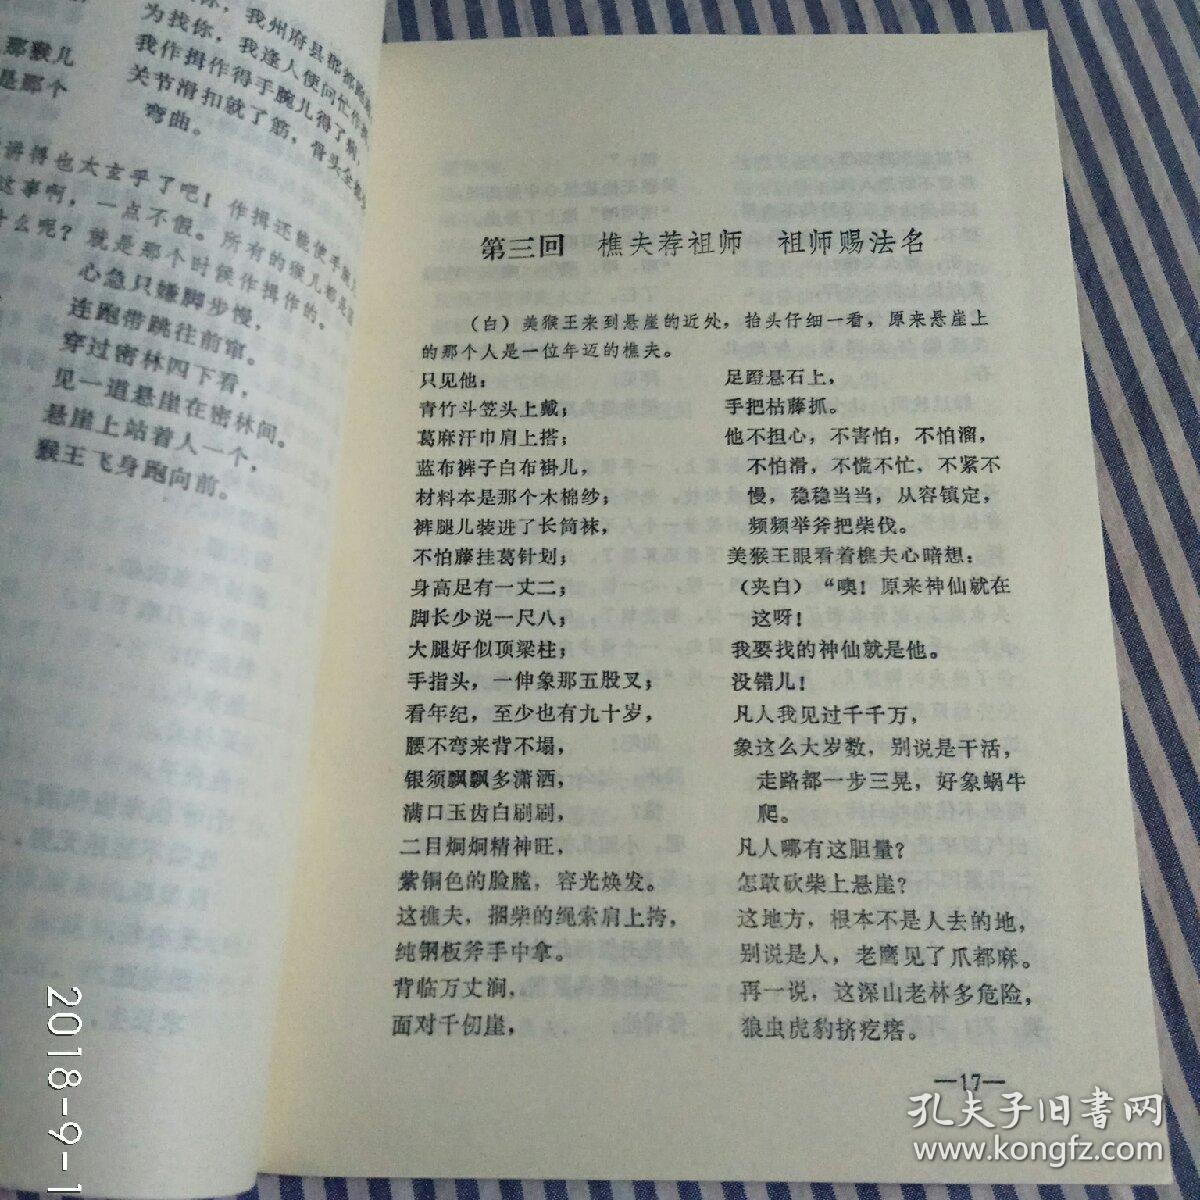 那猴儿
是那个
弯曲。
讲得也太玄乎了吧！作揖还能使手
这事啊，一点不假。所有的猴儿都是
什么呢？就是那个时候作揖作的。
心急只嫌脚步慢，
连跑带跳往前窜。
穿过密林四下看，
见一道悬崖在密林间。
悬崖上站着人一个，
猴王飞身跑向前。
第三回 樵夫荐祖师 祖师赐法名
（白）美猴王来到悬崖的近处，抬头仔细一看，原来悬崖上
的那个人是一位年迈的樵夫。
只见他：
青竹斗笠头上戴；
葛麻汗巾肩上搭；
蓝布裤子白布褂儿，
材料本是那个木棉纱；
裤腿儿装进了长筒袜，
不怕藤挂葛针划；
身高足有一丈二；
脚长少说一尺八；
大腿好似顶梁柱；
手指头，一伸象那五股叉；
看年纪，至少也有九十岁，
腰不弯来背不塌，
银须飘飘多潇洒，
满口玉齿白刷刷，
二目炯炯精神旺，
紫铜色的脸膛，容光焕发。
这樵夫，捆柴的绳索肩上挎，
纯钢板斧手中拿。
背临万丈涧，
面对千仞崖，
足蹬悬石上，
手把枯藤抓。
他不担心，不害怕，不怕溜，
不怕滑，不慌不忙，不紧不
慢，稳稳当当，从容镇定，
频频举斧把柴伐。
美猴王眼看着樵夫心暗想：
（夹白）“噢！原来神仙就在
这呀！
我要找的神仙就是他。
没错儿！
凡人我见过千千万，
象这么大岁数，别说是干活，
走路都一步三晃，好象蜗牛
爬。
凡人哪有这胆量？
怎敢砍柴上悬崖？
这地方，根本不是人去的地，
别说是人，老鹰见了爪都麻。
再一说，这深山老林多危险，
狼虫虎豹挤疙瘩。
—17—
2018-9-1
孔夫子旧书网
www.kongfz.com